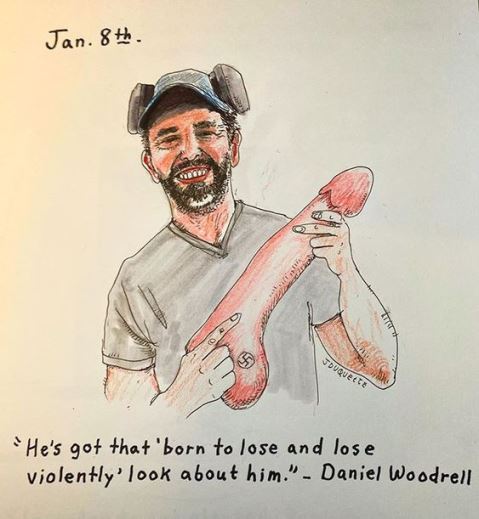 Jan. 8th.
JDUQUETTE
"He's got that 'born to lose and lose
violently' look about him." - Daniel Woodrell